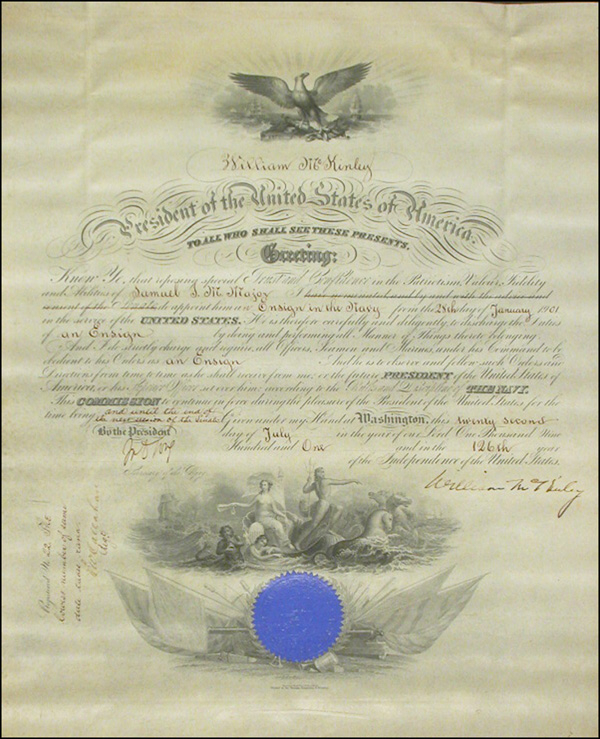 William McKinley
President of the United States of America.
TO ALL WHO SHALL SEE THESE PRESENTS,
Greeting:
Know Ye, that reposing special Trust and Confidence in the Patriotism, Valour, Fidelity
and Abilities of Samuel I. M. Major I have nominated and by and with the advice and
consent of the Senate do appoint him an Ensign in the Navy from the 28th day of January 1901
in the service of the UNITED STATES. He is therefore carefully and diligently to discharge the Duties
of an Ensign by doing and performing all Manner of Things thereto belonging.
And I do strictly charge and require all Officers, Seamen and Marines, under his Command to be
obedient to his Orders as an Ensign And he is to observe and follow such Orders and
Directions from time to time as he shall receive from me, or the future PRESIDENT of the United States of
America, or his Superior Officer set over him, according to the Rules and Discipline of THE NAVY.
This COMMISSION to continue in force during the pleasure of the President of the United States for the
time being and until the end of
the next session of the Senate. Given under my Hand at Washington, this twenty second
By the President day of July in the year of our Lord One Thousand Nine
Hundred and One and in the 126th year
of the Independence of the United States.
Secretary of the Navy.
William McKinley
lowest number of same
date takes rank.